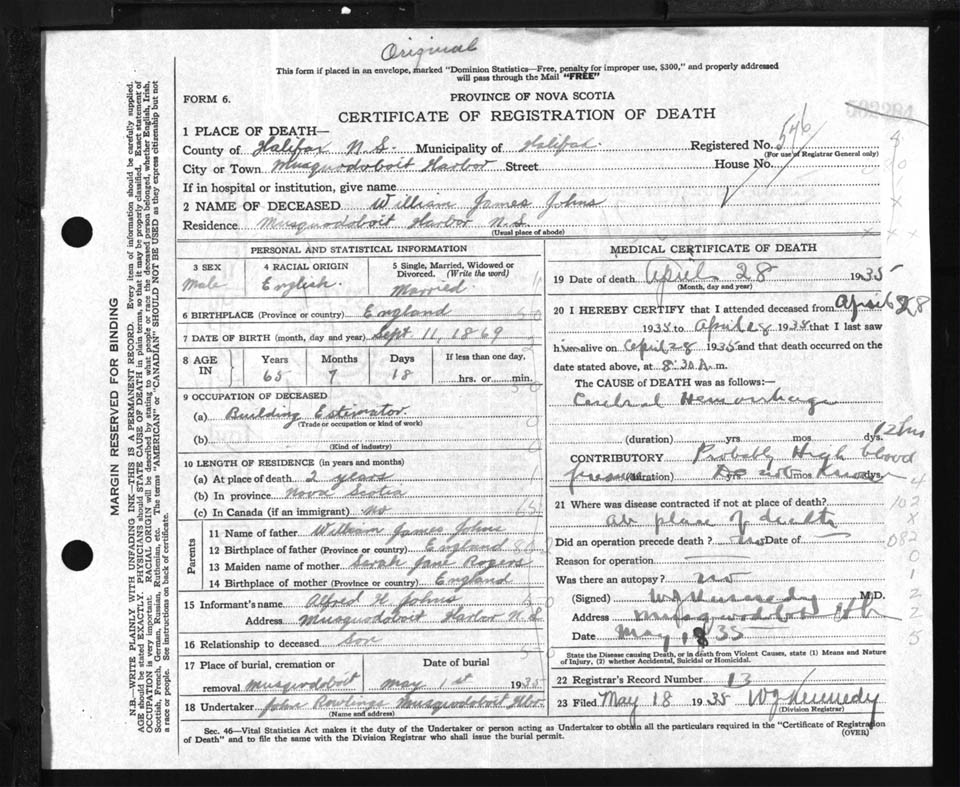 Original
This form if placed in an envelope, marked "Dominion Statistics—Free, penalty for improper use, $300," and properly addressed
will pass through the Mail "FREE"
FORM 6.
PROVINCE OF NOVA SCOTIA
CERTIFICATE OF REGISTRATION OF DEATH
502284
1 PLACE OF DEATH—
County of Halifax N.S. Municipality of Halifax Registered No. 546
(For use of Registrar General only)
City or Town Musquodoboit Harbor Street House No.
If in hospital or institution, give name
2 NAME OF DECEASED William James Johns
Residence Musquodoboit Harbor N.S.
(Usual place of abode)
PERSONAL AND STATISTICAL INFORMATION
3 SEX 4 RACIAL ORIGIN 5 Single, Married, Widowed or
Divorced. (Write the word)
Male English. Married
6 BIRTHPLACE (Province or country) England
7 DATE OF BIRTH (month, day and year) Sept. 11, 1869
8 AGE IN Years Months Days If less than one day,
65 7 18 hrs. or min.
9 OCCUPATION OF DECEASED
(a) Building Estimator
(Trade or occupation or kind of work)
(b)
(Kind of industry)
10 LENGTH OF RESIDENCE (in years and months)
(a) At place of death 2 years
(b) In province Nova Scotia
(c) In Canada (if an immigrant) No
Parents
11 Name of father William James Johns
12 Birthplace of father (Province or country) England
13 Maiden name of mother Sarah Jane Rogers
14 Birthplace of mother (Province or country) England
15 Informant's name Alfred H. Johns
Address Musquodoboit Harbor N.S.
16 Relationship to deceased Son
17 Place of burial, cremation or Date of burial
removal Musquodoboit May 1st 1935
18 Undertaker John Rowlings Musquodoboit Hbr.
(Name and address)
MEDICAL CERTIFICATE OF DEATH
19 Date of death April 28 1935
(Month, day and year)
20 I HEREBY CERTIFY that I attended deceased from April 28
1935 to April 28 1935 that I last saw
him alive on April 28 1935 and that death occurred on the
date stated above, at 8:30 A.m.
The CAUSE of DEATH was as follows:—
Cerebral Hemorrhage
(duration) yrs. mos. dys. 12 hrs
CONTRIBUTORY Probably High blood
pressure (duration) Do yrs. not mos. Know dys.
21 Where was disease contracted if not at place of death?
At place of death
Did an operation precede death? No Date of
Reason for operation
Was there an autopsy? no
(Signed) W J Kennedy M.D.
Address Musquodoboit Hbr
Date May 18 35
State the Disease causing Death, or in death from Violent Causes, state (1) Means and Nature
of Injury, (2) whether Accidental, Suicidal or Homicidal.
22 Registrar's Record Number 13
23 Filed May 18 1935 W J Kennedy
(Division Registrar)
Sec. 46—Vital Statistics Act makes it the duty of the Undertaker or person acting as Undertaker to obtain all the particulars required in the "Certificate of Registration
of Death" and to file the same with the Division Registrar who shall issue the burial permit.
(OVER)
MARGIN RESERVED FOR BINDING
N.B.—WRITE PLAINLY WITH UNFADING INK—THIS IS A PERMANENT RECORD. Every item of information should be carefully supplied.
AGE should be stated EXACTLY. PHYSICIANS should STATE CAUSE OF DEATH in plain terms, so that it may be properly classified. Exact statement of
OCCUPATION is very important. RACIAL ORIGIN will be described by stating to what people or race the deceased person belonged, whether English, Irish,
Scottish, French, German, Russian, Ruthenian, etc. The terms "AMERICAN" or "CANADIAN" SHOULD NOT BE USED as they express citizenship but not
a race or people. See instructions on back of certificate.